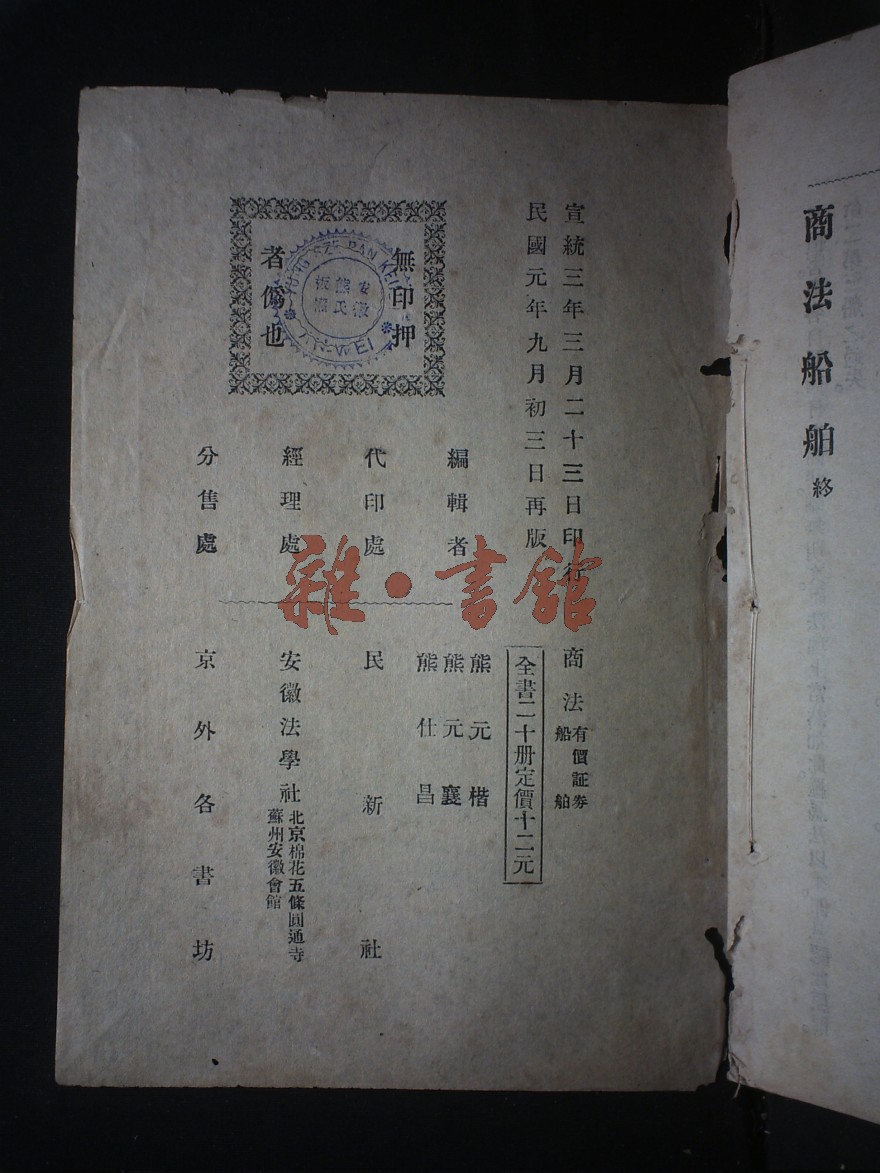 商法船舶終
宣統三年三月二十三日印行
民國元年九月初三日再版
商法有價証券船舶
全書二十册定價十二元
無印押
者僞也
安徽
熊氏
編輯者
熊元楷
熊元襄
熊仕昌
代印處
民新社
經理處
安徽法學社
北京棉花五條圓通寺
蘇州安徽會館
分售處
京外各書坊
雜·書館